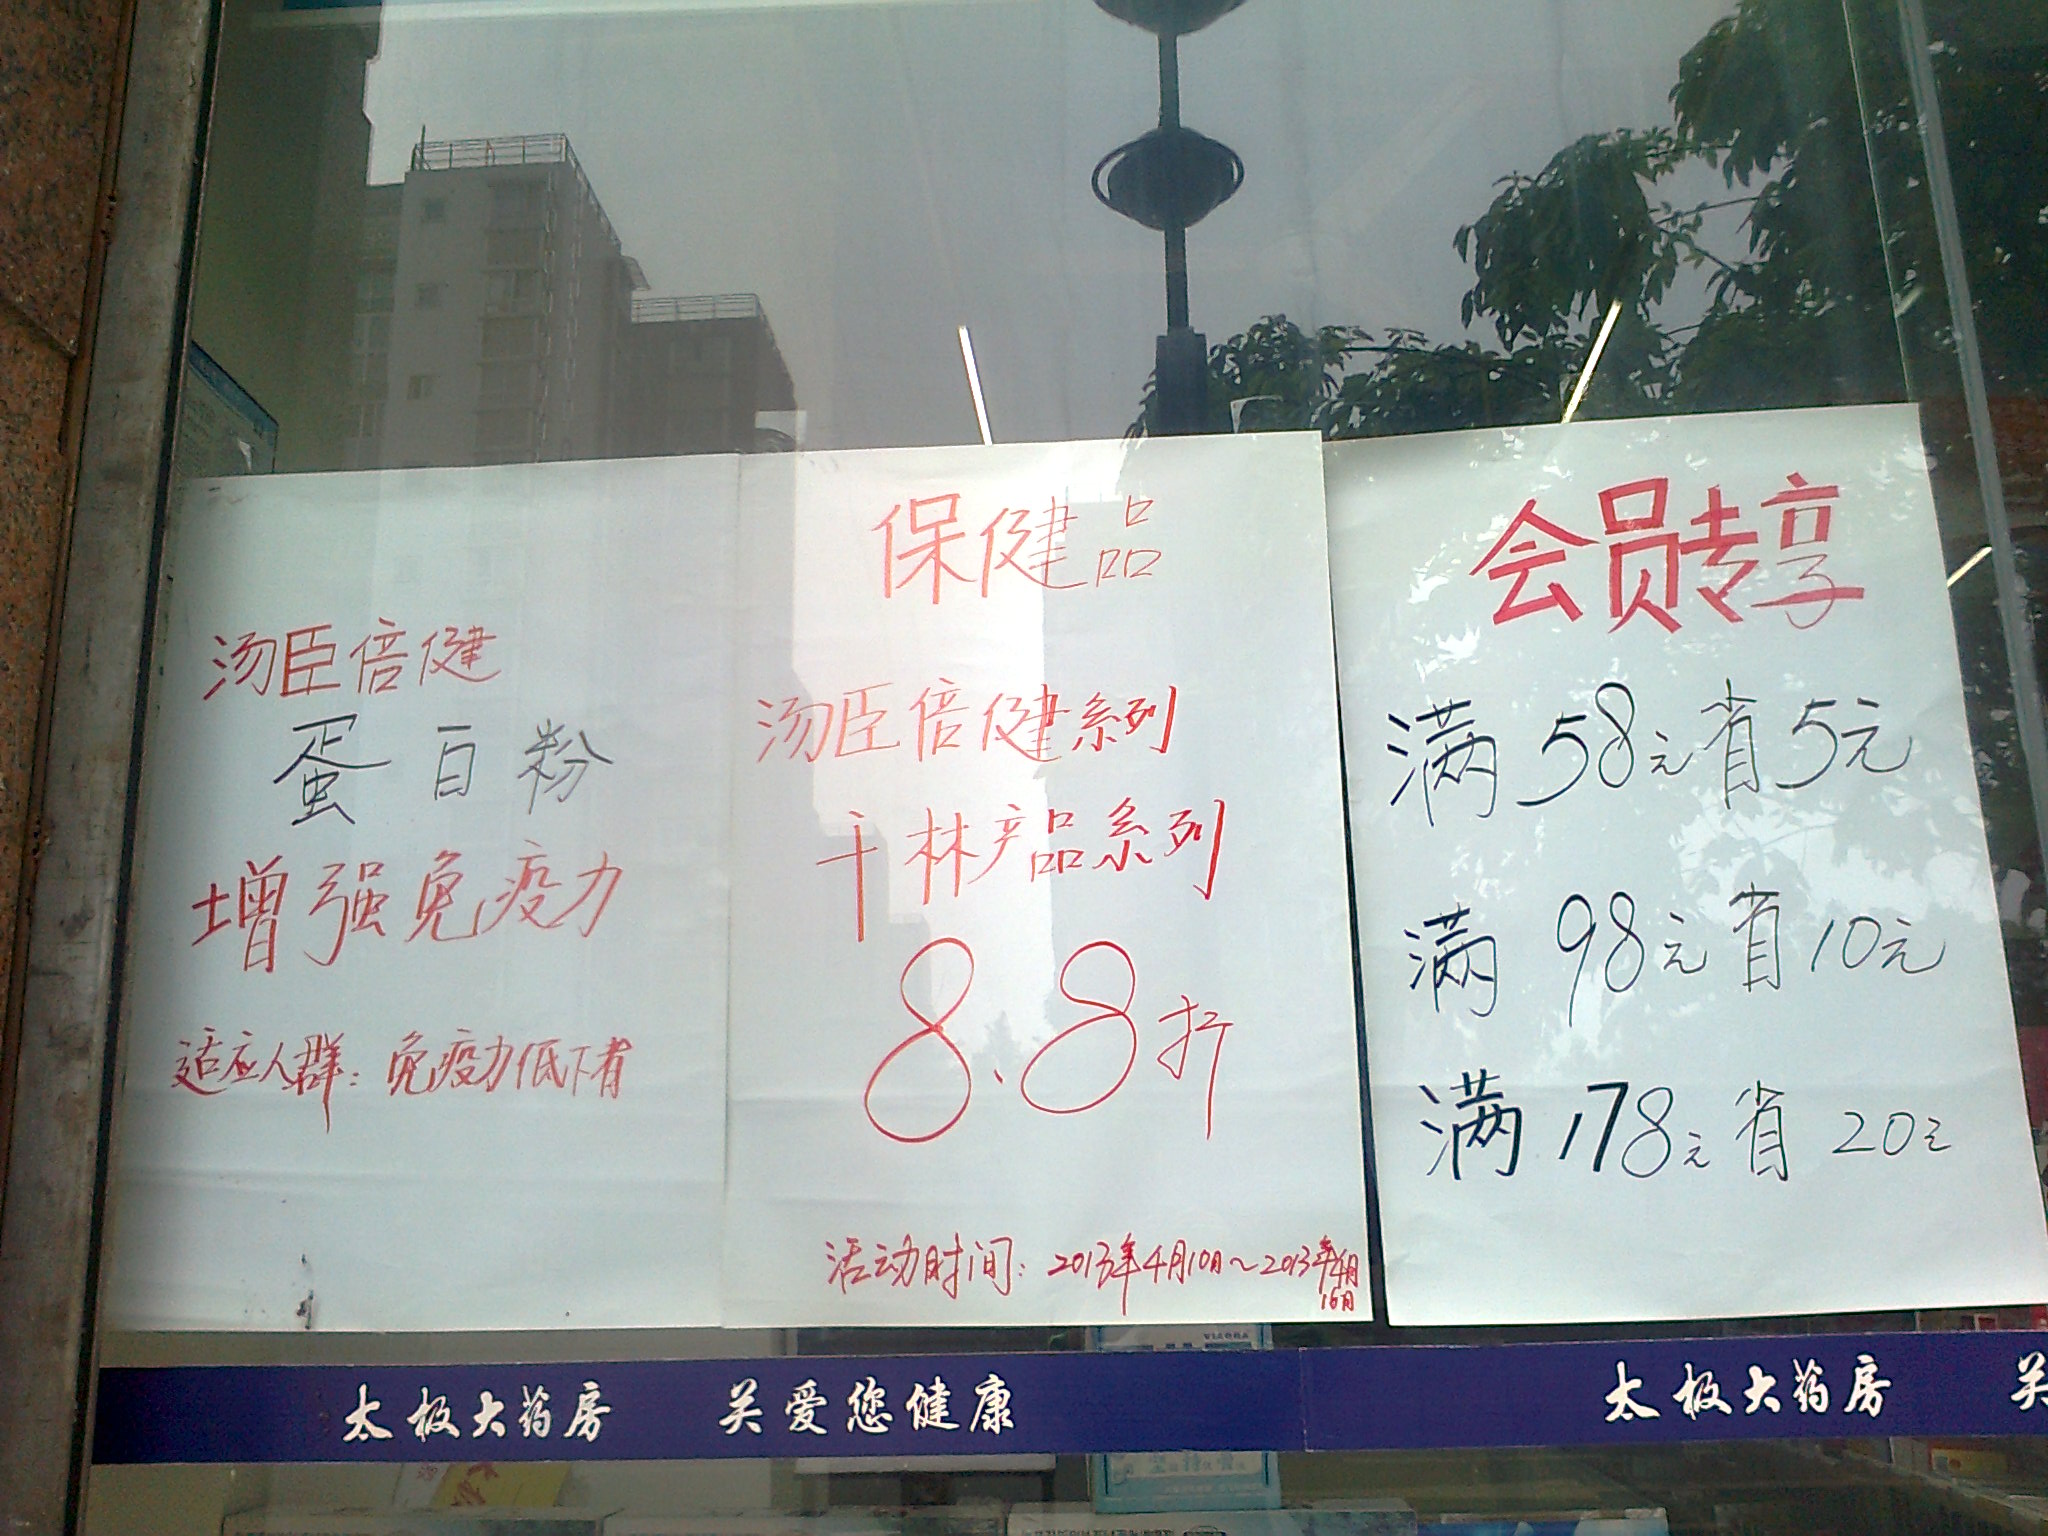 汤臣倍健
蛋白粉
增强免疫力
适应人群：免疫力低下者
保健品
汤臣倍健系列
千林产品系列
8.8折
活动时间：2013年4月10日～2013年4月
16日
会员专享
满58元省5元
满98元省10元
满178元省20元
太极大药房 关爱您健康
太极大药房 关
VIAGRA